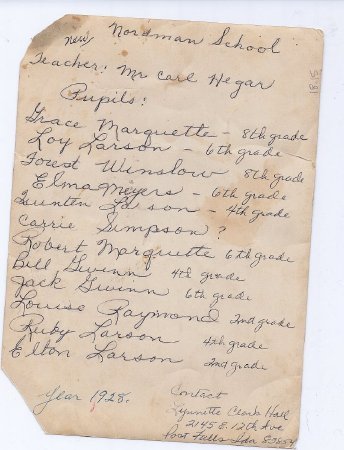 new Nordman School
Teacher: Mr Carl Hegar
Pupils:
Grace Marquette - 8th grade
Loy Larson - 6th grade
Forest Winslow 8th grade
Elma Meyers - 6th grade
Quentin Larson - 4th grade
Carrie Simpson ?
Robert Marquette 6th grade
Bill Gwinn 4th grade
Jack Gwinn 6th grade
Louise Raymond 2nd grade
Ruby Larson 4th grade
Elton Larson 2nd grade
Year 1928.
Contact
Lynnette Clark Hall
2145 E. 12th Ave
Post Falls Ida 83854